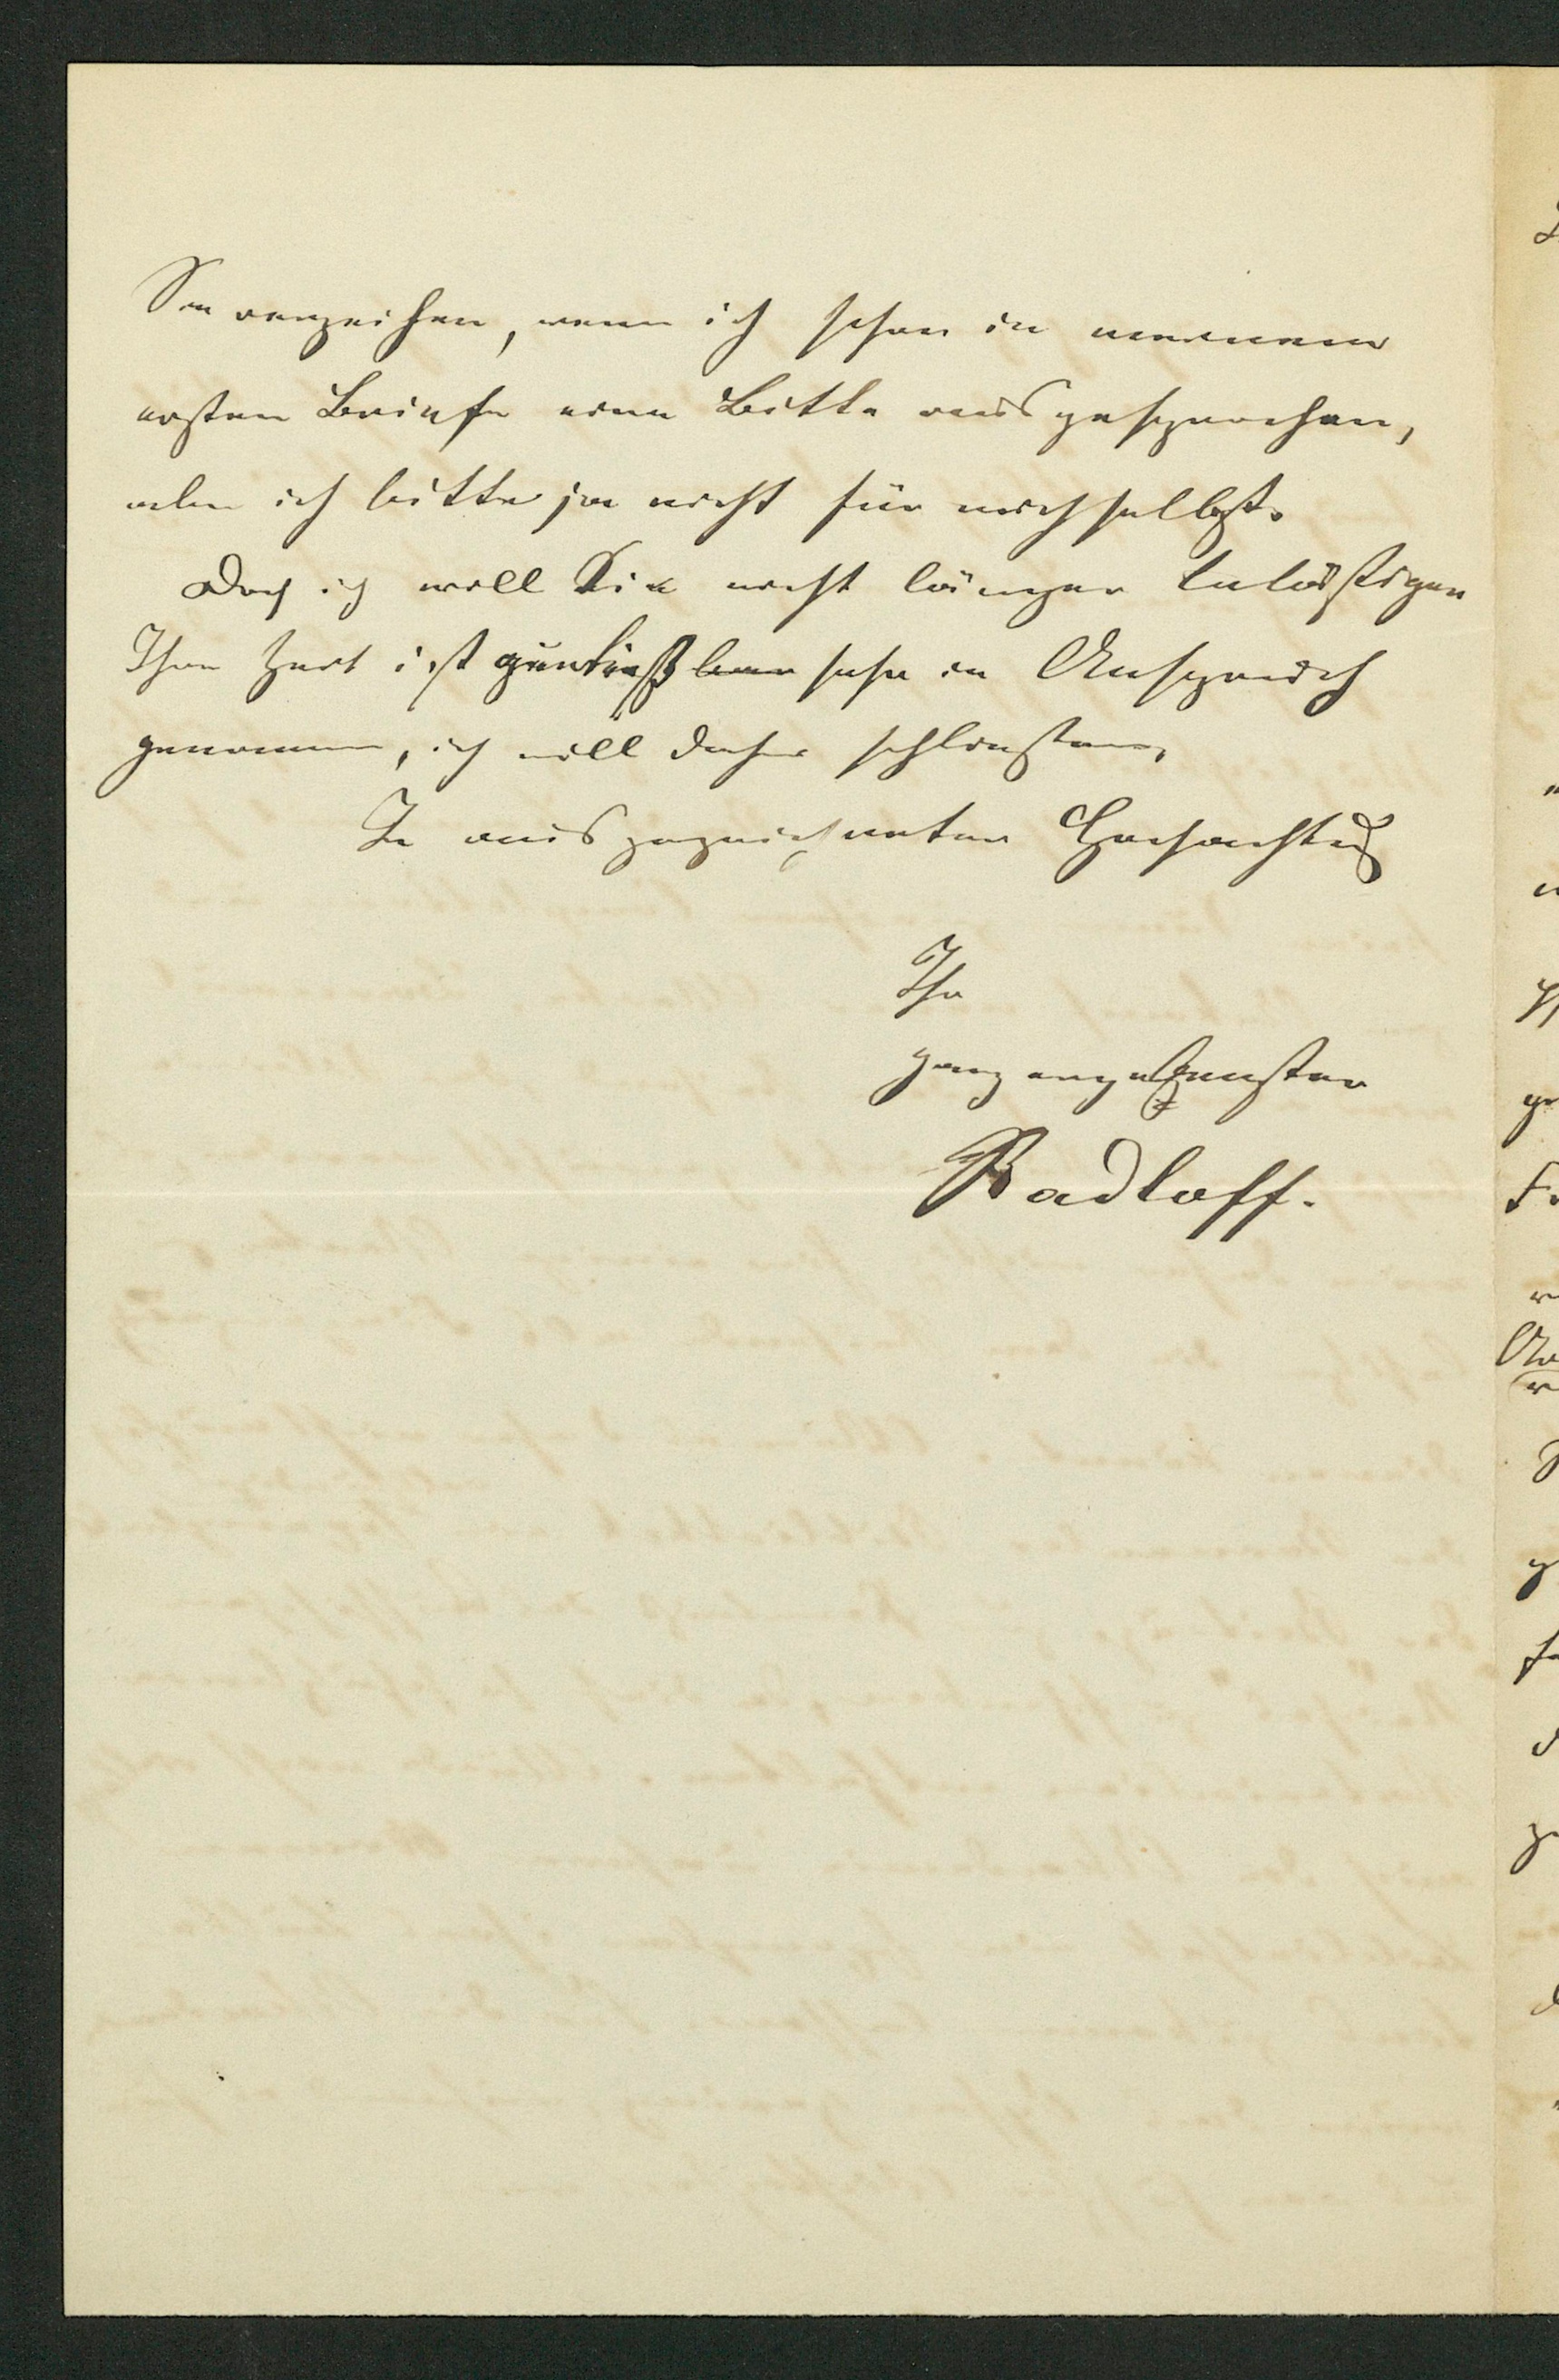 Sie verzeihen, wenn ich schon in meinem
ersten Briefe eine Bitte ausgesprochen,
aber ich bitte ja nicht für mich selbst.
Doch ich will Sie nicht länger belästigen
Ihre Zeit ist gewiß sehr in Anspruch
genommen, ich will daher schliessen,
In ausgezeichneter Hochachtung
Ihr
ganz ergebenster
Radloff.